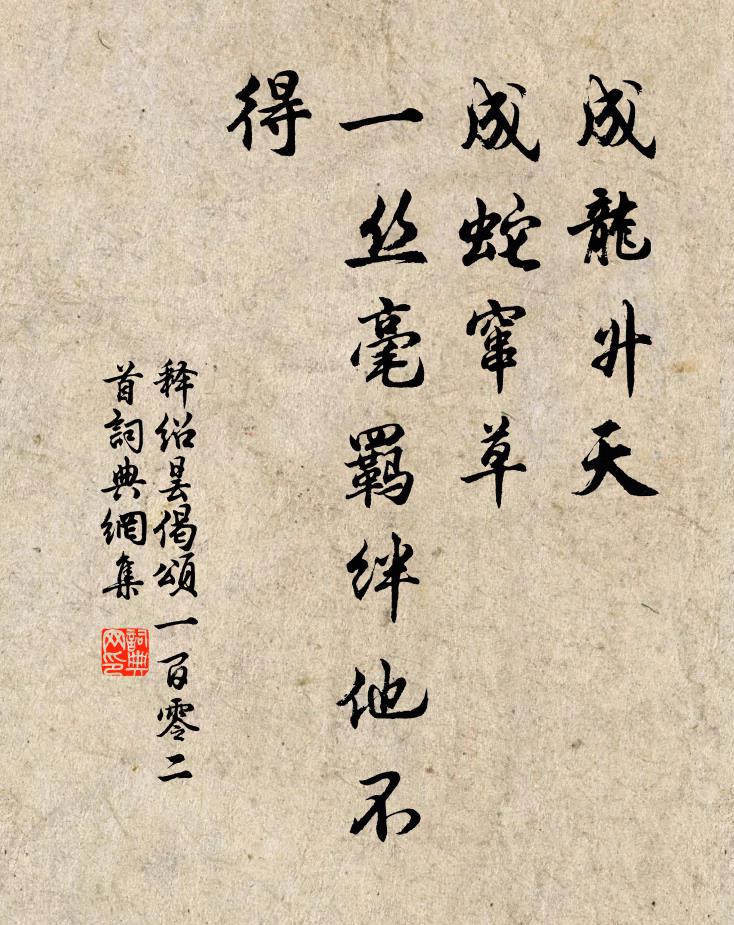 成龍升天
成蛇窜草
一丝毫羈绊他不
得
释绍昙偈頌一百零二
首詞典網集
詞典
网印